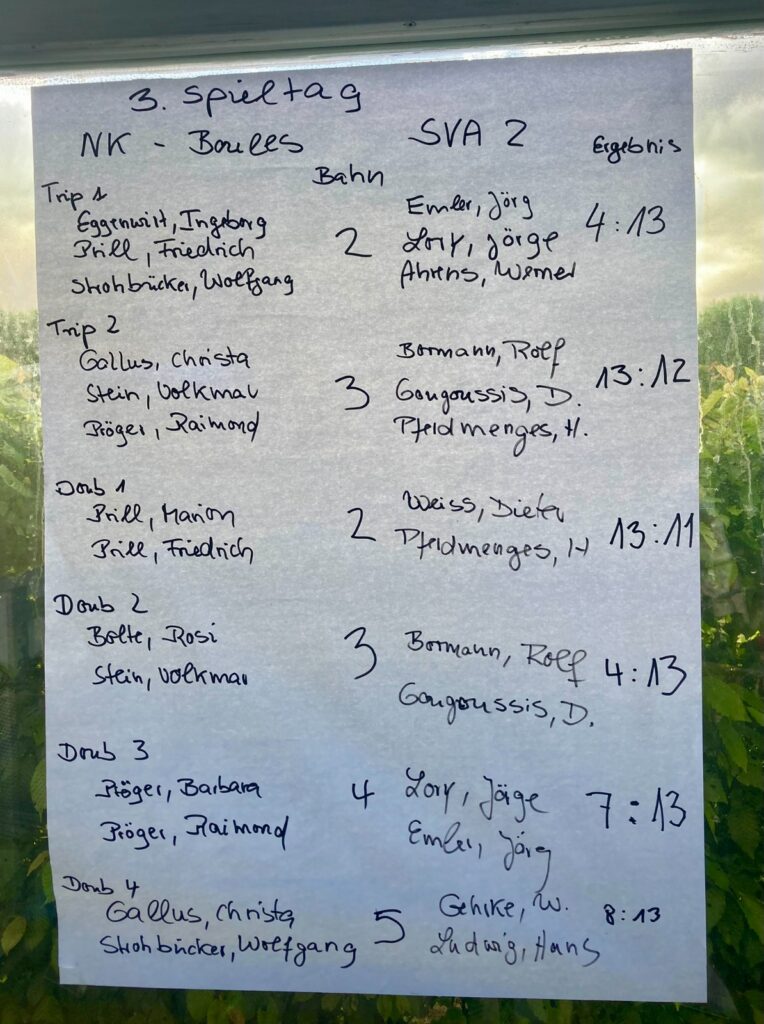 3. Spieltag
NK - Boules SVA 2 Ergebnis
Bahn
Trip 1
Eggenwirt, Ingeborg Emler, Jörg
Prill, Friedrich 2 Lory, Jörge 4:13
Strohbücker, Wolfgang Ahrens, Werner
Trip 2
Gallus, Christa Bormann, Rolf
Stein, Volkmar 3 Gougoussis, D. 13:12
Pröger, Raimond Pferdmenges, H.
Doub 1
Prill, Marion Weiss, Dieter
Prill, Friedrich 2 Pferdmenges, H 13:11
Doub 2
Bolte, Rosi 3 Bormann, Rolf 4:13
Stein, Volkmar Gougoussis, D.
Doub 3
Pröger, Barbara 4 Lory, Jörge 7:13
Pröger, Raimond Emler, Jörg
Doub 4
Gallus, Christa Gehrke, W. 8:13
Strohbücker, Wolfgang 5 Ludwig, Hans